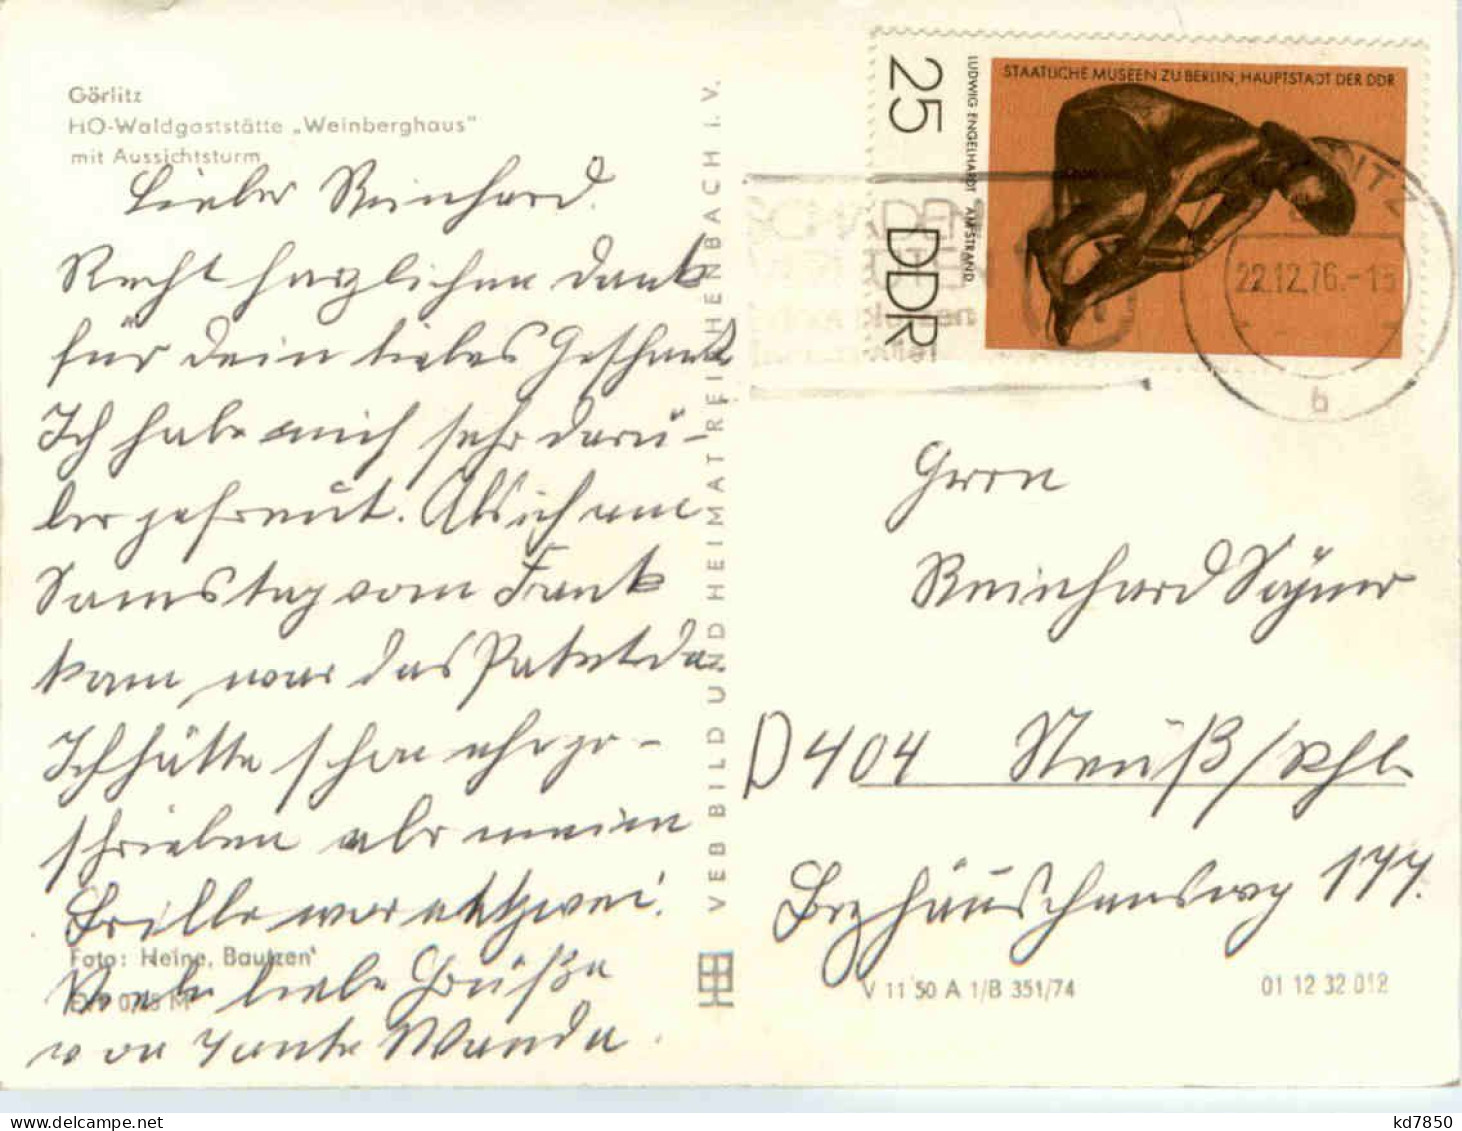 Görlitz
HO-Waldgaststätte „Weinberghaus"
mit Aussichtsturm
Lieber Reinhard.
Recht herzlichen Dank
für Dein liebes Geschenk
Ich habe mich sehr darü-
ber gefreut. Als ich am
Samstag vom Frank
kam, war das Paket da.
Ich hätte schon eher ge-
schrieben aber meine
Brille war entzwei.
Viele liebe Grüße
von Tante Wanda.
Foto: Heine, Bautzen
VEB BILD UND HEIMAT REICHENBACH I. V.
25 DDR
LUDWIG ENGELHARDT AM STRAND
STAATLICHE MUSEEN ZU BERLIN, HAUPTSTADT DER DDR
22.12.76.-15
b
Herrn
Reinhard
D 404 Neuß/Rhl.
177.
V 11 50 A 1/B 351/74
01 12 32 018
kd7850